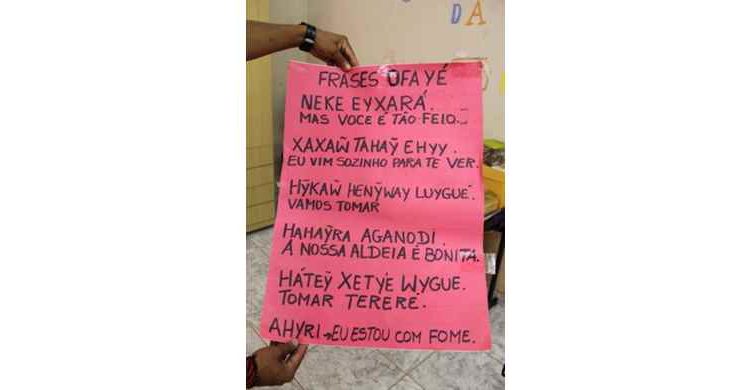 DA
FRASES OFAYÉ
NEKE EYXARÁ.
MAS VOCE É TÃO FEIO...
XAXAW̃ TAHAỸ EHYY.
EU VIM SOZINHO PARA TE VER.
HỸKAW̃ HENỸWAY LUYGUÉ.
VAMOS TOMAR
HAHAỸRA AGANODI.
A NOSSA ALDEIA É BONITA.
HÁTEỸ XETYÉ WYGUE.
TOMAR TERERÉ.
AHYRI → EU ESTOU COM FOME.